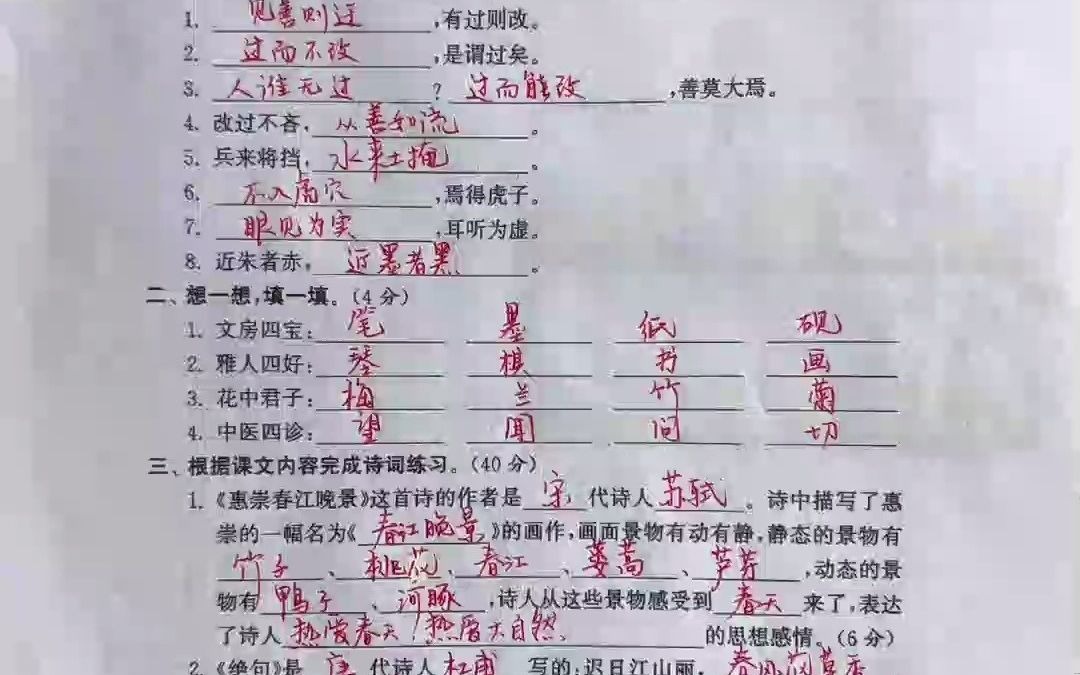 1. 见善则迁,有过则改。
2. 过而不改,是谓过矣。
3. 人谁无过?过而能改,善莫大焉。
4. 改过不吝,从善如流。
5. 兵来将挡,水来土掩。
6. 不入虎穴,焉得虎子。
7. 眼见为实,耳听为虚。
8. 近朱者赤,近墨者黑。
二、想一想,填一填。(4分)
1. 文房四宝:笔 墨 纸 砚
2. 雅人四好:琴 棋 书 画
3. 花中君子:梅 兰 竹 菊
4. 中医四诊:望 闻 问 切
三、根据课文内容完成诗词练习。(40分)
1.《惠崇春江晚景》这首诗的作者是宋代诗人苏轼。诗中描写了惠
崇的一幅名为《春江晚景》的画作,画面景物有动有静,静态的景物有
竹子、桃花、春江、蒌蒿、芦芽,动态的景
物有鸭子、河豚,诗人从这些景物感受到春天来了,表达
了诗人热爱春天,热爱大自然的思想感情。(6分)
2.《绝句》是唐代诗人杜甫写的:迟日江山丽,春风花草香